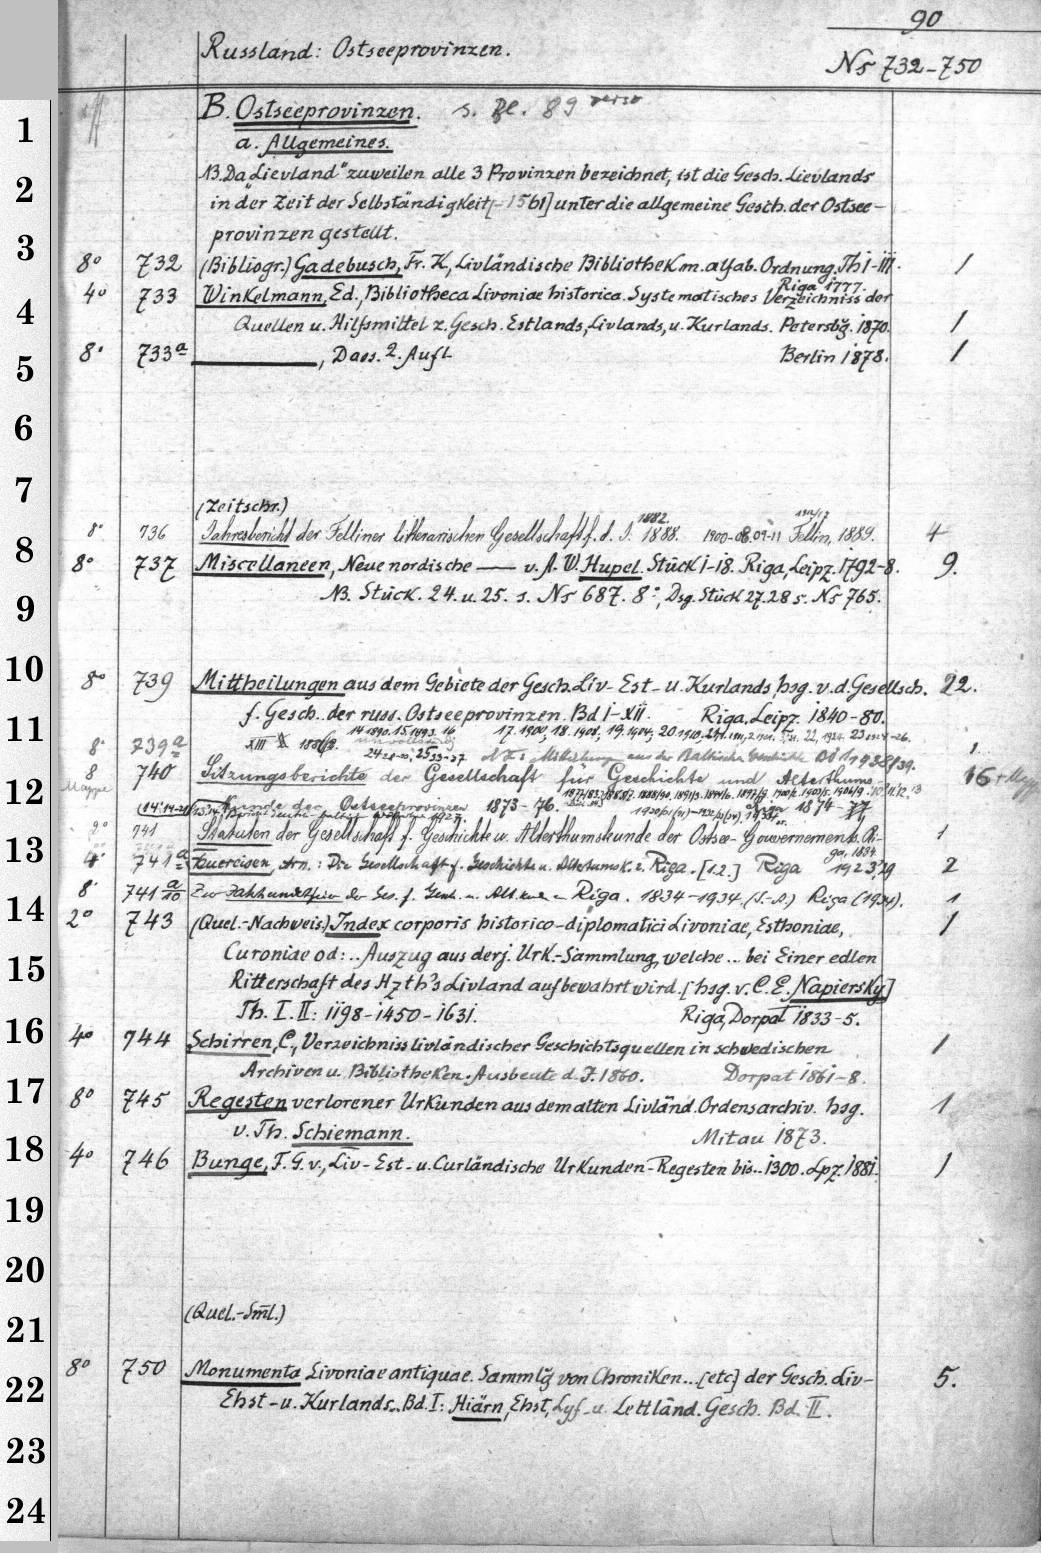 90
Russland: Ostseeprovinzen.
No 732-750
B. Ostseeprovinzen. s. Bl. 89 verso
1
a. Allgemeines.
NB. Da „Lievland" zuweilen alle 3 Provinzen bezeichnet, ist die Gesch. Lievlands
2
in der Zeit der Selbständigkeit [-1561] unter die allgemeine Gesch. der Ostsee-
provinzen gestellt.
3
8° 732 (Bibliogr.) Gadebusch, Fr. K., Livländische Bibliothek m. alfab. Ordnung. Th I-III. 1
Riga 1777.
4° 733 Winkelmann, Ed., Bibliotheca Livoniae historica. Systematisches Verzeichniss der
4
Quellen u. Hilfsmittel z. Gesch. Estlands, Livlands, u. Kurlands. Petersbg. 1870. 1
8° 733a ———, Dass. 2. Aufl Berlin 1878. 1
5
6
7
(Zeitschr.)
1882. 1912/17
8° 736 Jahresbericht der Felliner litterarischen Gesellschaft f. d. J. 1888. 1900-08.09-11 Fellin, 1889. 4
8
8° 737 Miscellaneen, Neue nordische — v. A. W. Hupel. Stück 1-18. Riga, Leipz. 1792-8. 9.
NB. Stück. 24. u. 25. s. No 687. 8°; Dsg. Stück 27.28 s. No 765.
9
10
8° 739 Mittheilungen aus dem Gebiete der Gesch. Liv- Est- u. Kurlands hsg. v. d. Gesellsch. 22.
f. Gesch. der russ. Ostseeprovinzen. Bd I-XII. Riga, Leipz. 1840-80.
11
XIII 14 1890. 15. 1893. 16 17. 1900, 18. 1908, 19. 1904, 20 1910. 22, 1924. 23 1924-26.
8° 739a N.F.: Mitteilungen aus der Baltischen Geschichte Bd 1 1938/39. 1.
8° 740 Sitzungsberichte der Gesellschaft für Geschichte und Alterthums- 16 + Mappe
Mappe
12
kunde der Ostseeprovinzen 1873-76. Riga 1874-77
2° 741 Statuten der Gesellschaft f. Geschichte u. Alterthumskunde der Ostsee-Gouvernements. Ri- 1
ga, 1834.
13
4° 741a Buereisen, Arn.: Die Gesellschaft f. Geschichte u. Altertumsk. z. Riga. [1.2.] Riga 1923/29 2
8° 741a/10 Zur Jahrhundertfeier der Ges. f. Gesch. u. Alt. kunde Riga. 1834-1934. (S.-A.) Riga (1934). 1
14
2° 743 (Quel.-Nachweis.) Index corporis historico-diplomatici Livoniae, Esthoniae, 1
Curoniae od: .. Auszug aus derj. Urk.-Sammlung, welche... bei Einer edlen
15
Ritterschaft des Hzth's Livland aufbewahrt wird. [hsg. v. C. E. Napiersky]
Th. I. II: 1198-1450-1631. Riga, Dorpat 1833-5.
16
4° 744 Schirren, C., Verzeichniss livländischer Geschichtsquellen in schwedischen 1
Archiven u. Bibliotheken. Ausbeute d. J. 1860. Dorpat 1861-8.
17
8° 745 Regesten verlorener Urkunden aus dem alten Livländ. Ordensarchiv. hsg. 1
v. Th. Schiemann. Mitau 1873.
18
4° 746 Bunge, F. G. v., Liv- Est- u. Curländische Urkunden-Regesten bis.. 1300. Lpz. 1881. 1
19
20
(Quel.-Sml.)
21
8° 750 Monumenta Livoniae antiquae. Sammlg von Chroniken... [etc] der Gesch. Liv- 5.
22
Ehst- u. Kurlands.. Bd. I: Hiärn, Ehst, Lyf- u. Lettländ. Gesch. Bd. II.
23
24